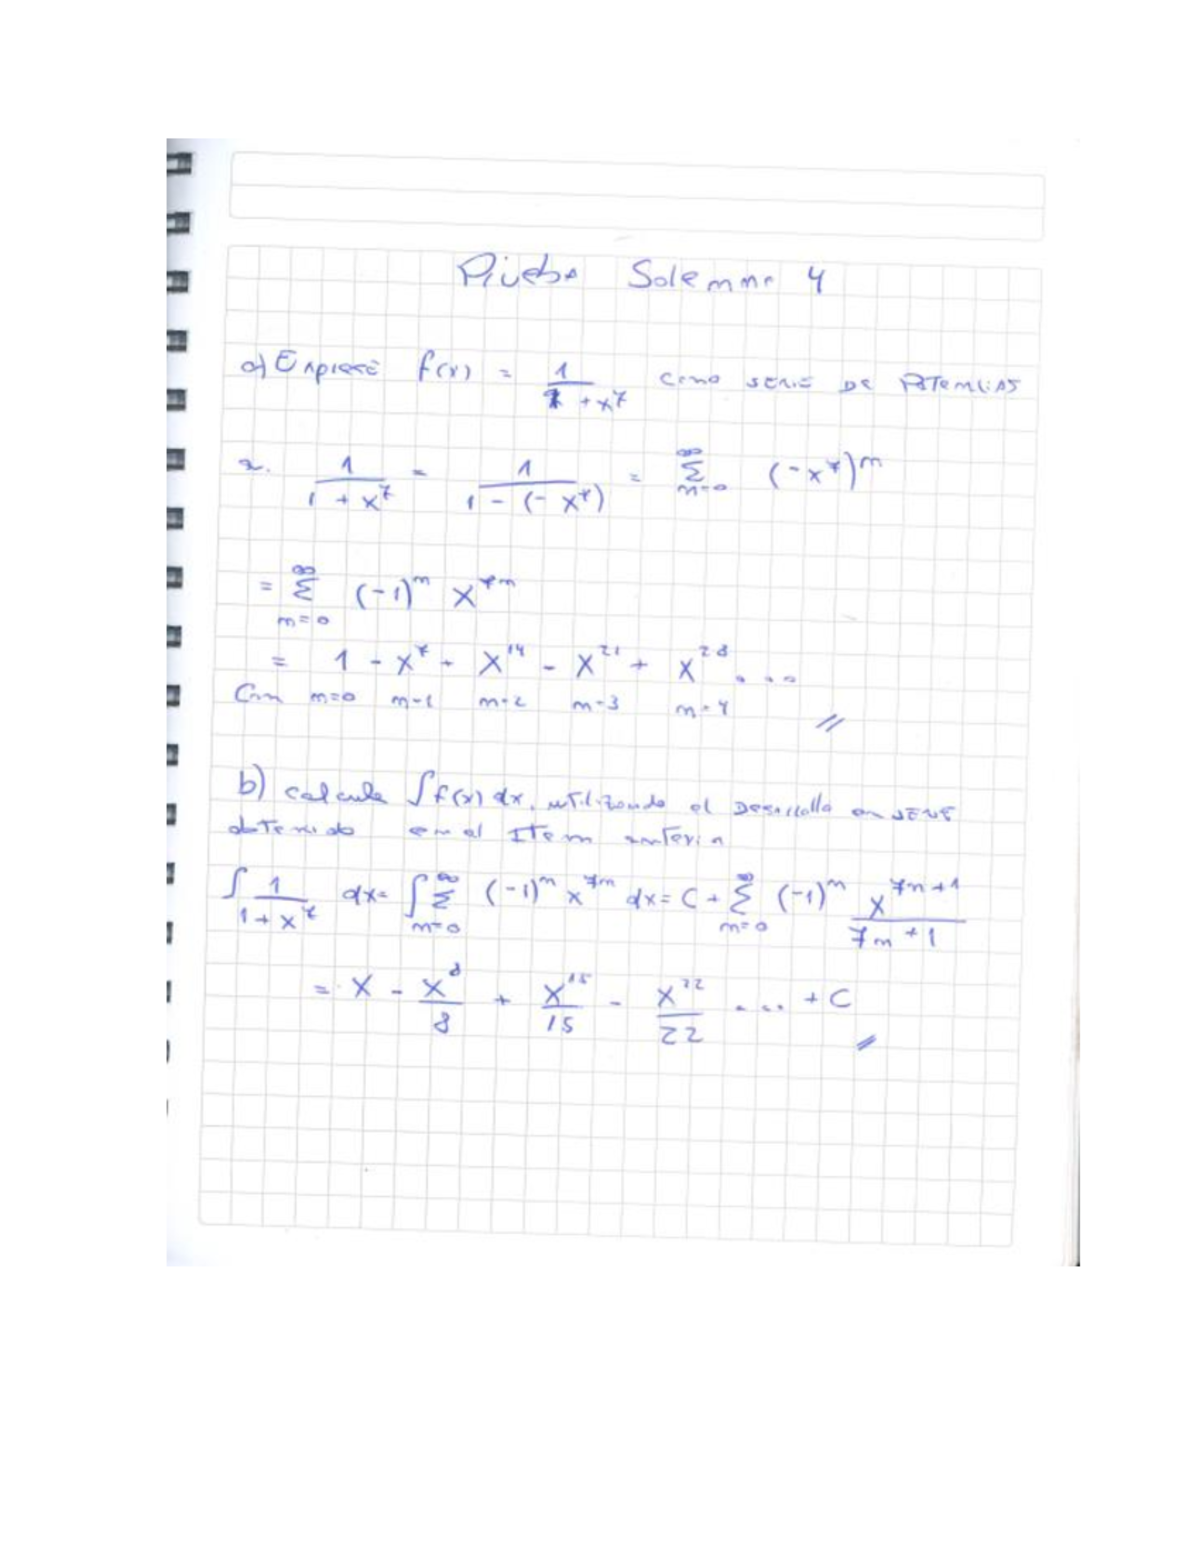 Prueba Solemne 4
a) Exprese f(x) = 1/(1 + x^7) como SERIE DE POTENCIAS
a. 1/(1 + x^7) = 1/(1 - (-x^7)) = Σ_{n=0}^{∞} (-x^7)^n
= Σ_{n=0}^{∞} (-1)^n x^{7n}
= 1 - x^7 + x^14 - x^21 + x^28 ...
Con n=0 n=1 n=2 n=3 n=4 //
b) calcule ∫f(x) dx, utilizando el Desarrollo en SERIE
obtenido en el Item anterior
∫ 1/(1 + x^7) dx = ∫ Σ_{n=0}^{∞} (-1)^n x^{7n} dx = C + Σ_{n=0}^{∞} (-1)^n x^{7n+1}/(7n+1)
= x - x^8/8 + x^15/15 - x^22/22 .... + C //